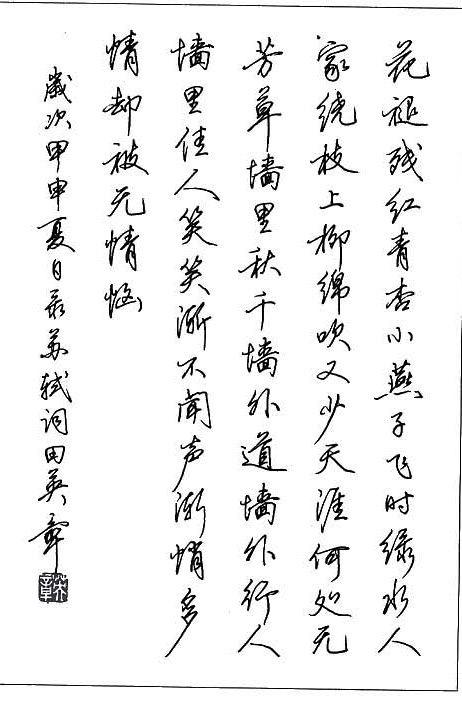 花褪残红青杏小燕子飞时绿水人
家绕枝上柳绵吹又少天涯何处无
芳草墙里秋千墙外道墙外行人
墙里佳人笑笑渐不闻声渐悄多
情却被无情恼
歲次甲申夏日录苏轼词田英章
英章